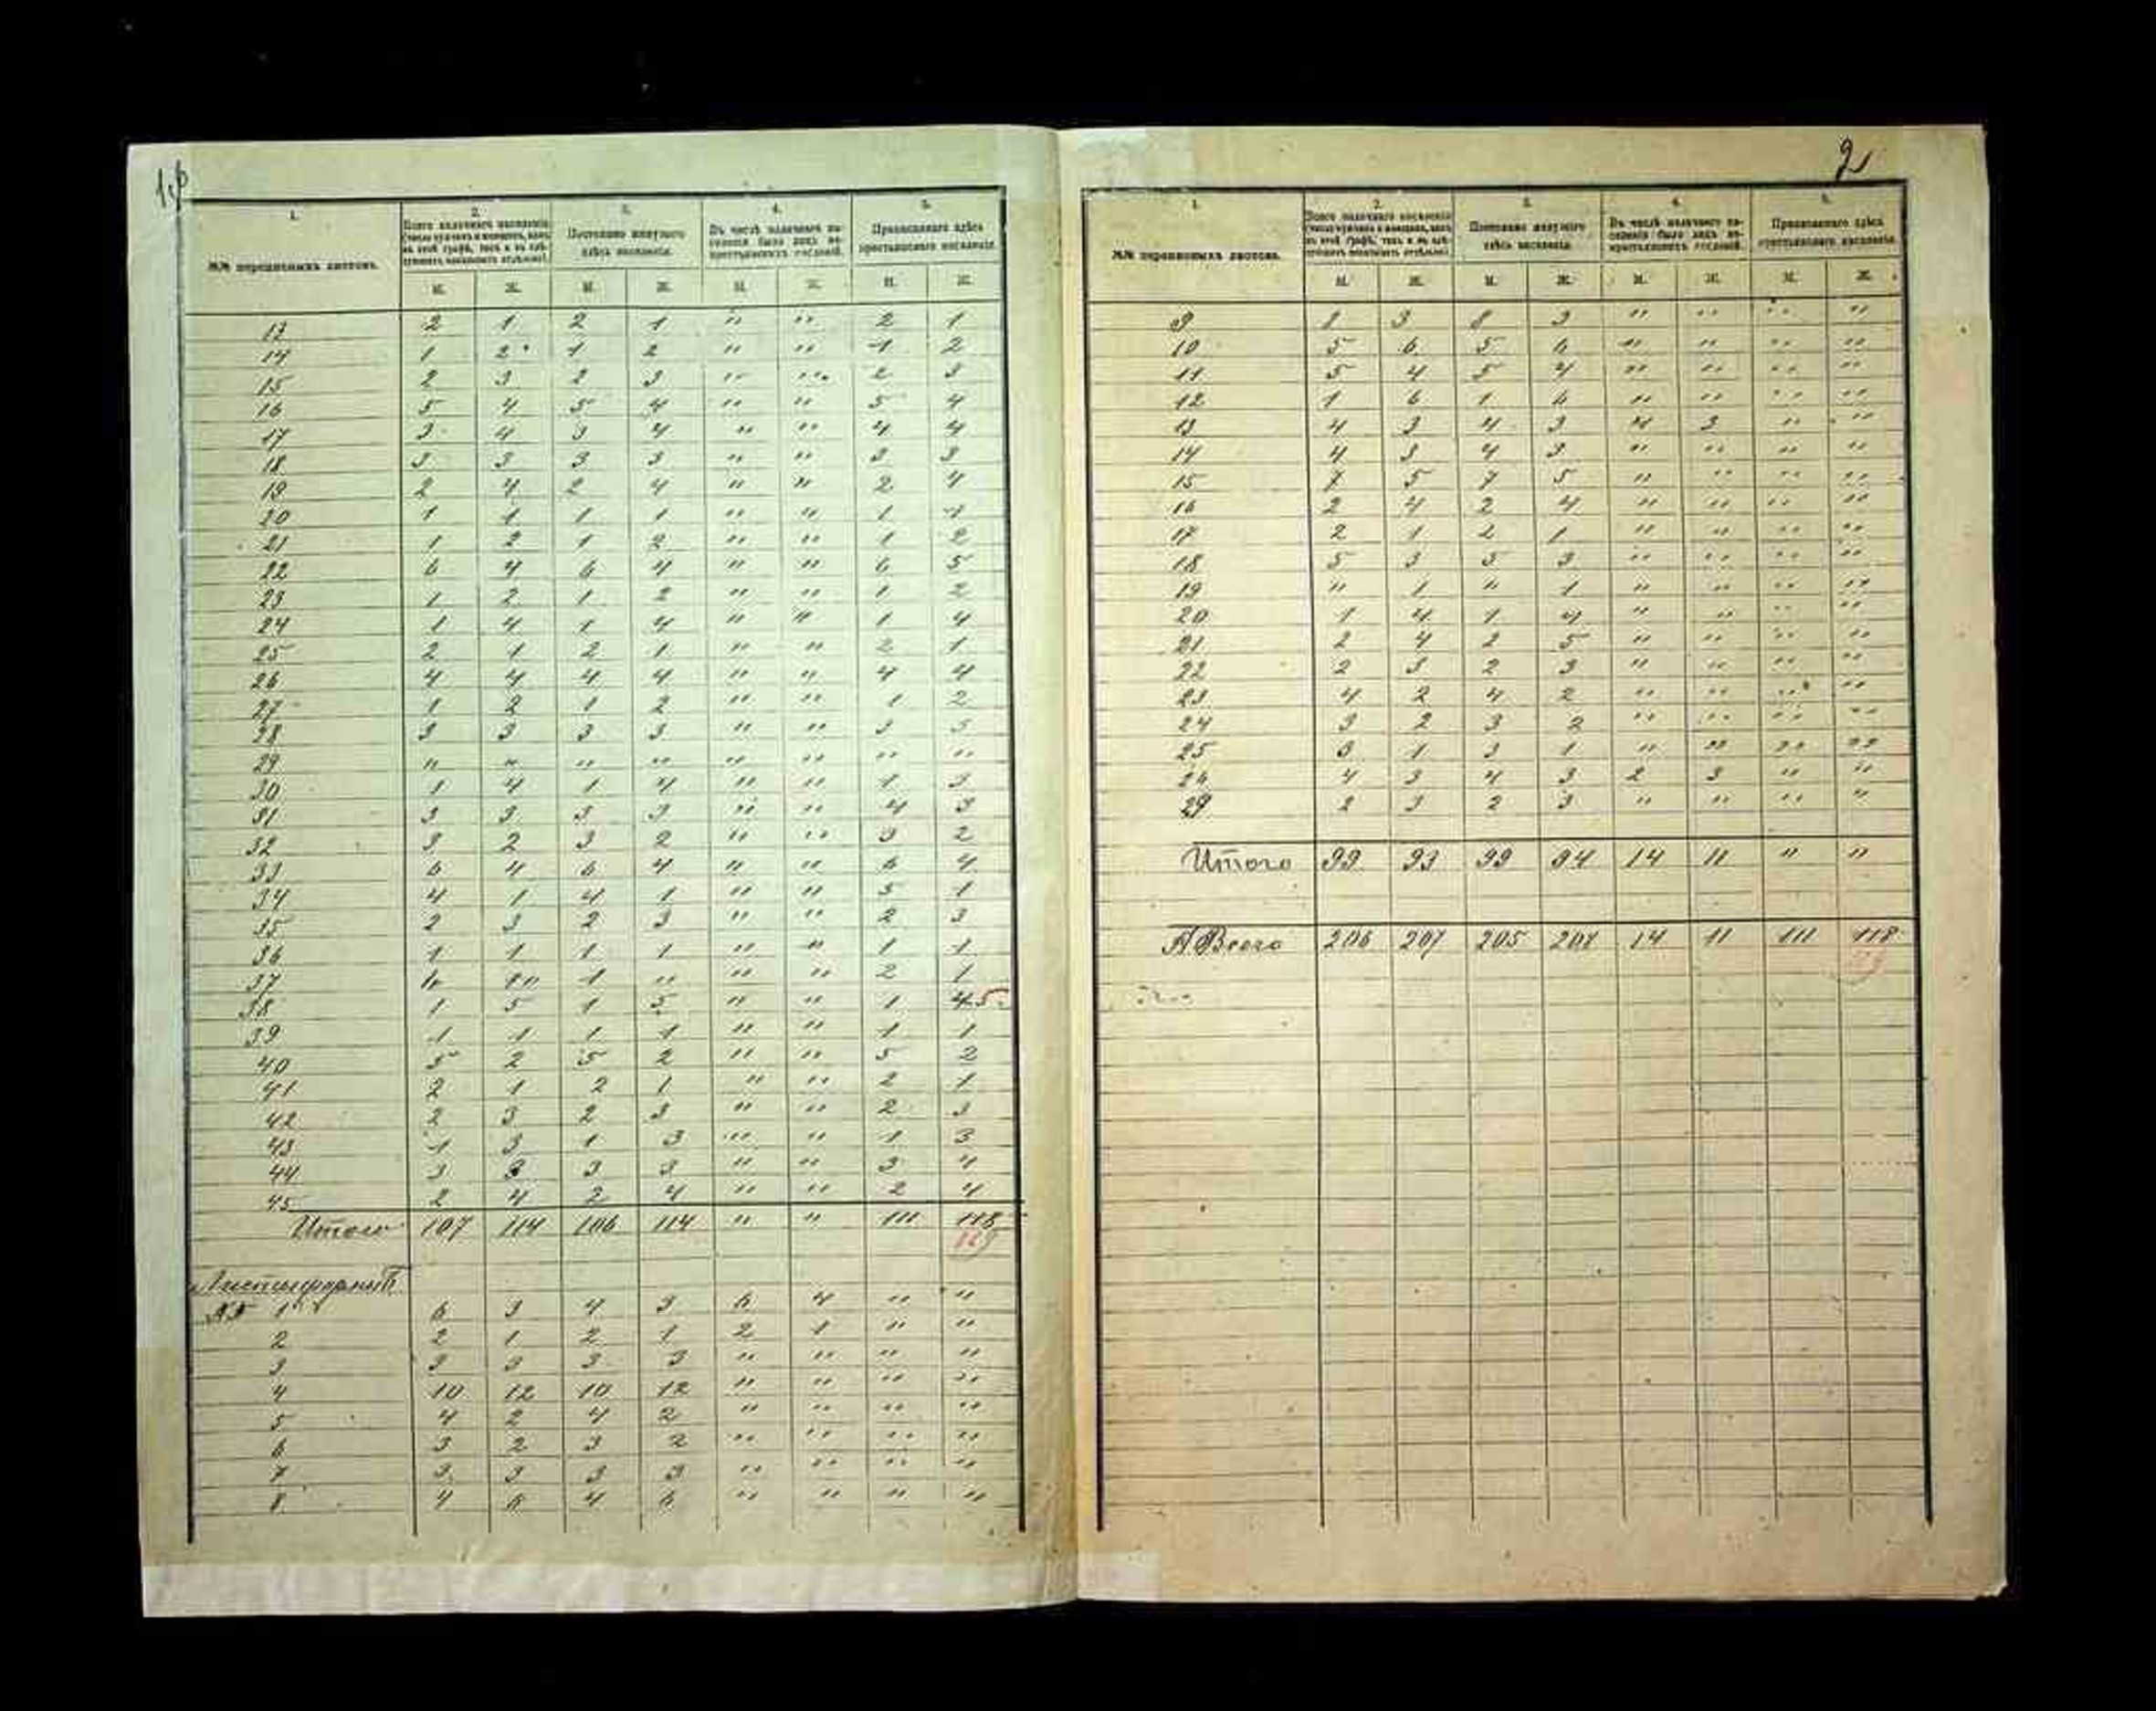 1.
2.
Всего наличнаго населенія
3.
Постоянно живущаго
здѣсь населенія.
4.
Въ числѣ наличнаго на-
селенія было лицъ не-
крестьянскихъ сословій.
5.
Приписаннаго здѣсь
крестьянскаго населенія
№№ переписныхъ листовъ.
М. Ж. М. Ж. М. Ж. М. Ж.
13 2 1 2 1 " " 2 1
14 1 2 1 2 " " 1 2
15 2 3 2 3 " " 2 3
16 5 4 5 4 " " 5 4
17 3 4 3 4 " " 4 4
18 3 3 3 3 " " 3 3
19 2 4 2 4 " " 2 4
20 1 1 1 1 " " 1 1
21 1 2 1 2 " " 1 2
22 6 4 6 4 " " 6 5
23 1 2 1 2 " " 1 2
24 1 4 1 4 " " 1 4
25 2 1 2 1 " " 2 1
26 4 4 4 4 " " 4 4
27 1 2 1 2 " " 1 2
28 3 3 3 3 " " 3 3
29 " " " " " " " "
30 1 4 1 4 " " 1 3
31 3 3 3 3 " " 4 3
32 3 2 3 2 " " 3 2
33 6 4 6 4 " " 6 4
34 4 1 4 1 " " 5 1
35 2 3 2 3 " " 2 3
36 1 1 1 1 " " 1 1
37 1 " 1 " " " 2 1
38 1 5 1 5 " " 1 4 5
39 1 1 1 1 " " 1 1
40 5 2 5 2 " " 5 2
41 2 1 2 1 " " 2 1
42 2 3 2 3 " " 2 3
43 1 3 1 3 " " 1 3
44 3 3 3 3 " " 3 4
45 2 4 2 4 " " 2 4
Итого 107 114 106 114 " " 111 118
119
1 6 3 4 3 6 4 " "
2 2 1 2 1 2 1 " "
3 3 3 3 3 " " " "
4 10 12 10 12 " " " "
5 4 2 4 2 " " " "
6 3 2 3 2 " " " "
7 3 3 3 3 " " " "
8 4 6 4 6 " " " "
2
1.
2.
Всего наличнаго населенія
3.
Постоянно живущаго
здѣсь населенія.
4.
Въ числѣ наличнаго на-
селенія было лицъ не-
крестьянскихъ сословій.
5.
Приписаннаго здѣсь
крестьянскаго населенія
№№ переписныхъ листовъ.
М. Ж. М. Ж. М. Ж. М. Ж.
9 8 3 8 3 " " " "
10 5 6 5 6 " " " "
11 5 4 5 4 " " " "
12 1 6 1 6 " " " "
13 4 3 4 3 4 3 " "
14 4 3 4 3 " " " "
15 7 5 7 5 " " " "
16 2 4 2 4 " " " "
17 2 1 2 1 " " " "
18 5 3 5 3 " " " "
19 " 1 " 1 " " " "
20 1 4 1 4 " " " "
21 2 4 2 5 " " " "
22 2 3 2 3 " " " "
23 4 2 4 2 " " " "
24 3 2 3 2 " " " "
25 3 1 3 1 " " " "
26 4 3 4 3 2 3 " "
29 2 3 2 3 " " " "
Итого 99 93 99 94 14 11 " "
А Всего 206 207 205 208 14 11 111 118